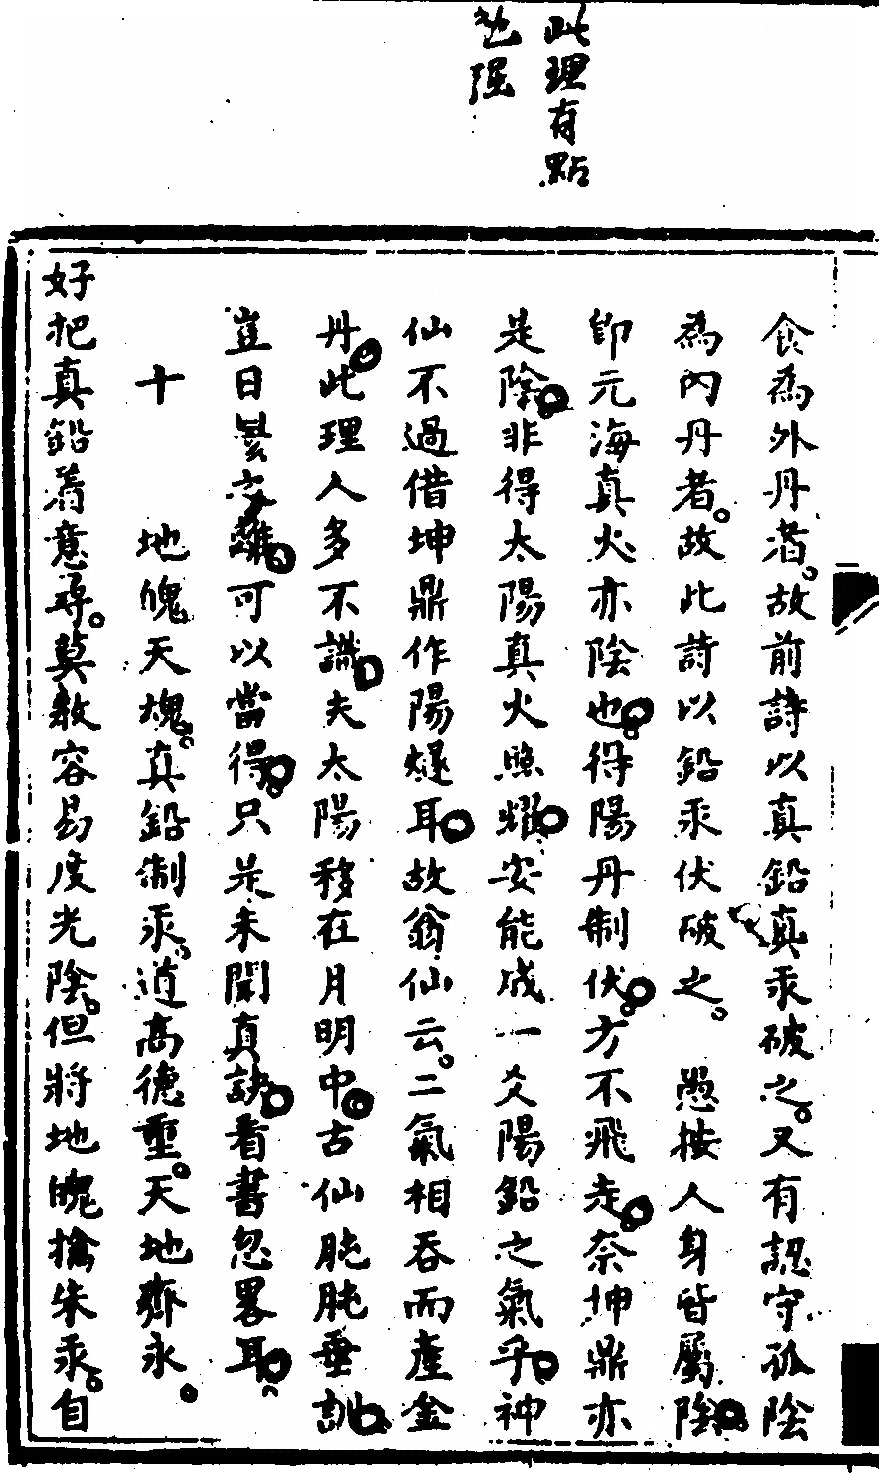 此理有點
也強
食為外丹者。故前詩以真鉛真汞破之。又有認守孤陰
為內丹者。故此詩以鉛汞伏破之。愚按人身皆屬陰
卽元海真火亦陰也得陽丹制伏方不飛走奈坤鼎亦
是陰非得太陽真火照耀安能成一爻陽鉛之氣乎神
仙不過借坤鼎作陽燧耳故翁仙云。二氣相吞而產金
丹此理人多不識夫太陽移在月明中古仙肫肫垂訓
豈日曇之難可以當得只是未聞真訣看書忽畧耳
十 地魄天魂。真鉛制汞。道高德重。天地齊永。
好把真鉛着意尋。莫教容易度光陰。但將地魄擒朱汞。自